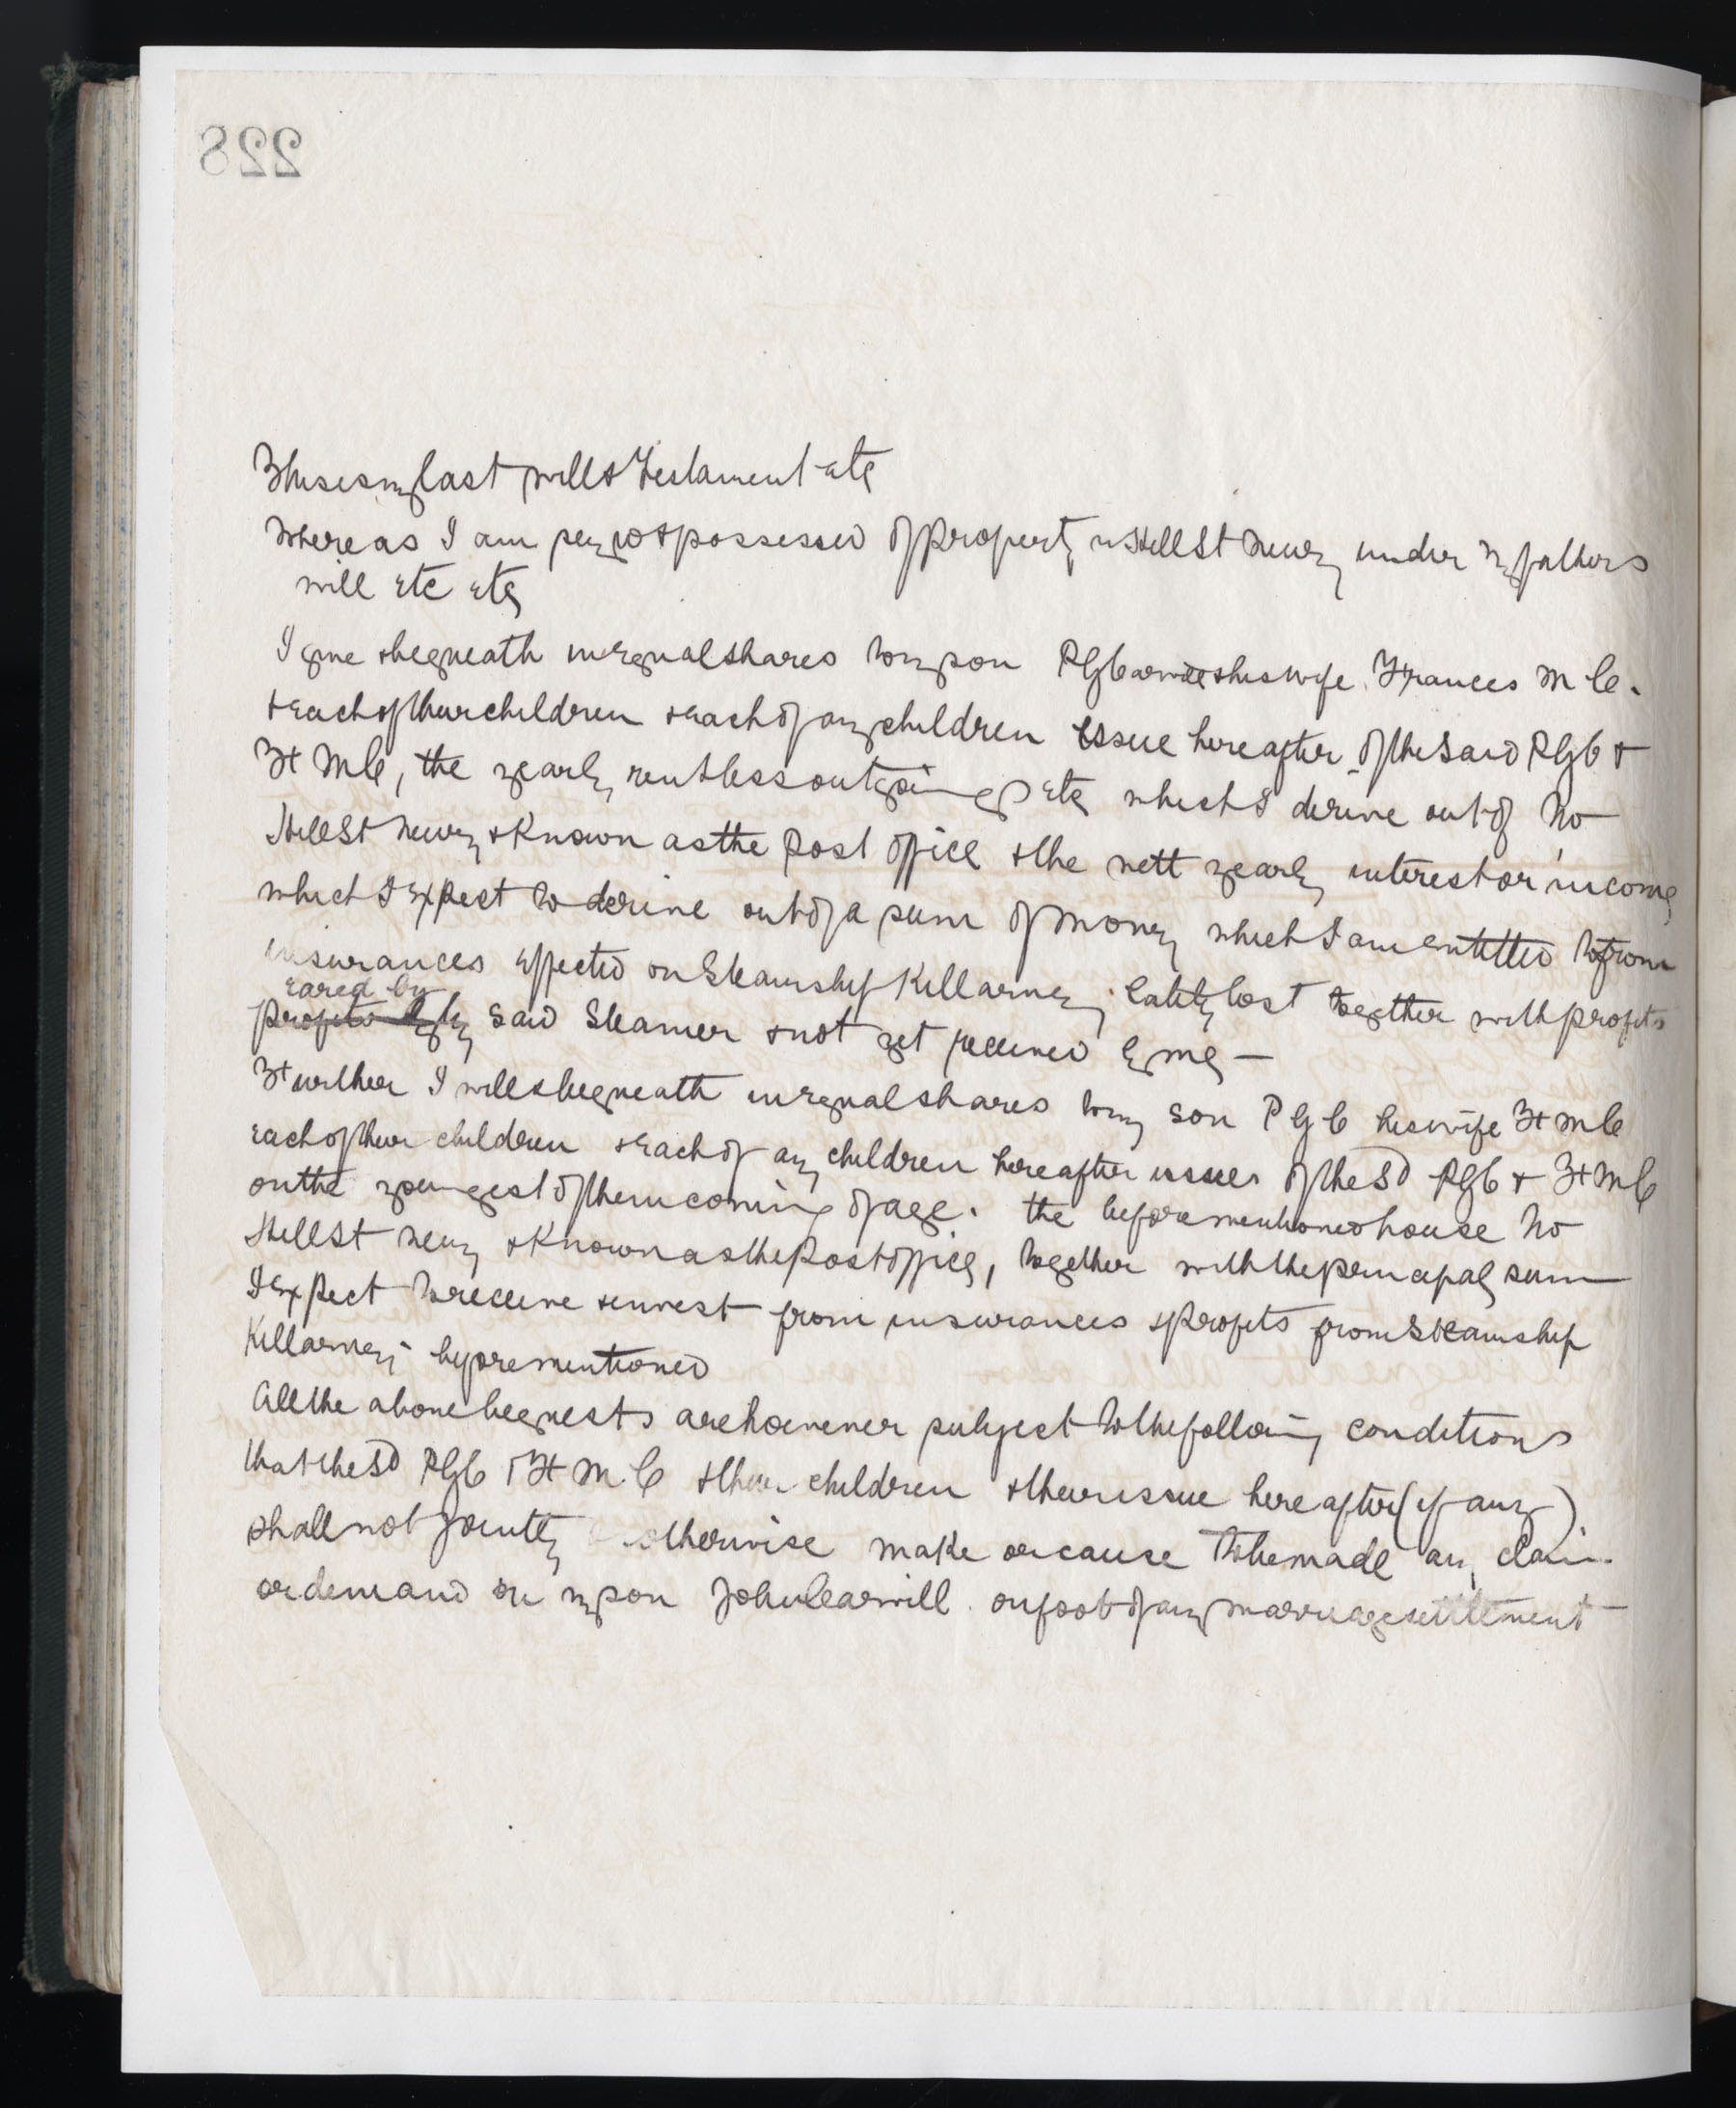 228
This is my last will & Testament etc
Whereas I am seized & possessed of property in Hill St Newry under my fathers
will etc etc
I give & bequeath in equal shares to my son P G Carvill & his wife Frances M C.
& each of their children & each of any children issue hereafter of the said P G C &
F M C, the yearly rent less outgoings etc which I derive out of No
Hill St Newry & Known as the Post office & the nett yearly interest or income
which I expect to derive out of a sum of money which I am entitled to from
insurances effected on Steamship Killarney, lately lost together with profits
earned by
profits said Steamer & not yet received by me —
Further I will & bequeath in equal shares to my son P G C his wife F M C
each of their children & each of any children hereafter issue of the Sd P G C & F M C
on the youngest of them coming of age. the before mentioned house No
Hill St Newry & Known as the Post office, together with the principal sum
I expect to receive & invest from insurances & profits from Steamship
Killarney beforementioned
All the above bequests are however subject to the following conditions
that the Sd P G C & F M C & their children & their issue hereafter (if any)
shall not jointly otherwise make or cause to be made any claim
or demand on my son John Carvill on foot of any marriage settlement